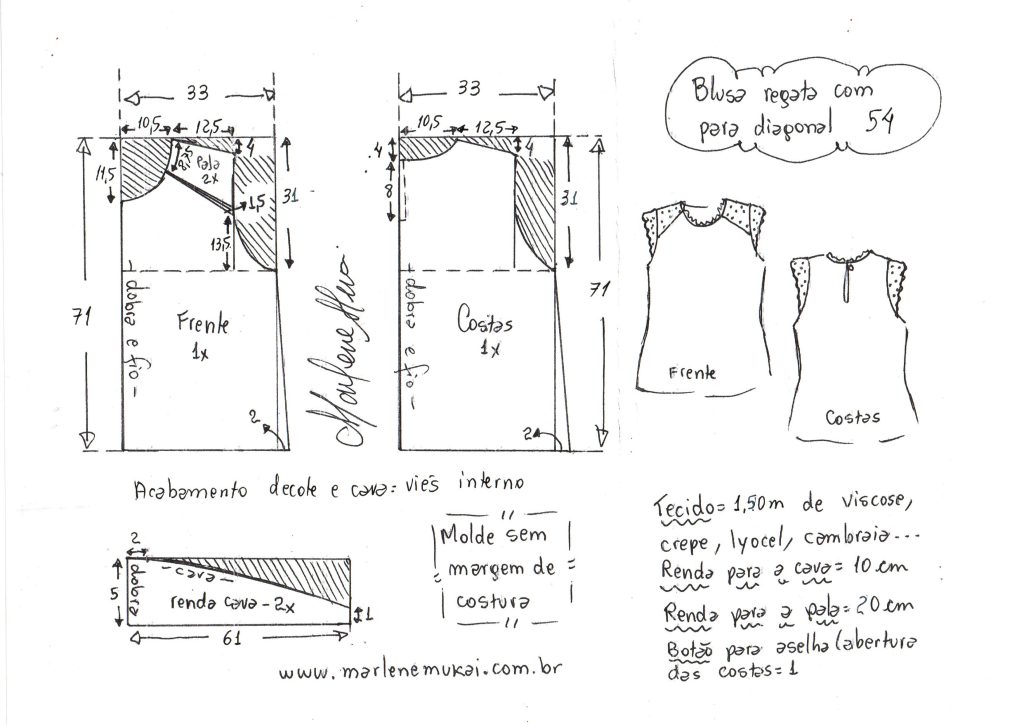 Blusa regata com
para diagonal 54
33
10,5
12,5
4
11,5
8,5
Pala
2x
31
1,5
13,5
71
dobra e fio
Frente
1x
2
Marlene Mukai
33
10,5
12,5
4
4
8
31
71
dobra e fio
Costas
1x
2
Frente
Costas
Acabamento decote e cava: viés interno
2
5
dobra
cava
renda cava - 2x
1
61
Molde sem
margem de
costura
www.marlenemukai.com.br
Tecido= 1,50m de viscose,
crepe, lyocel, cambraia...
Renda para a cava= 10 cm
Renda para a pala= 20 cm
Botão para aselha (abertura
das costas= 1